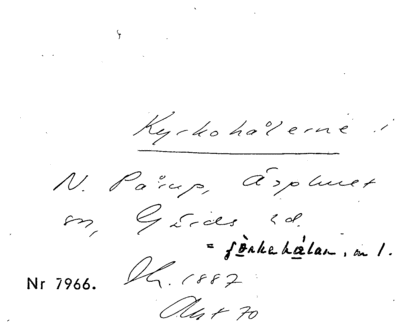 Kyrkohålerne i
N. Pårup, Äsphult
sn, Gärds hd.
= ɟörkehålan, m l.
Nr 7966. Dh. 1887
Akt 70